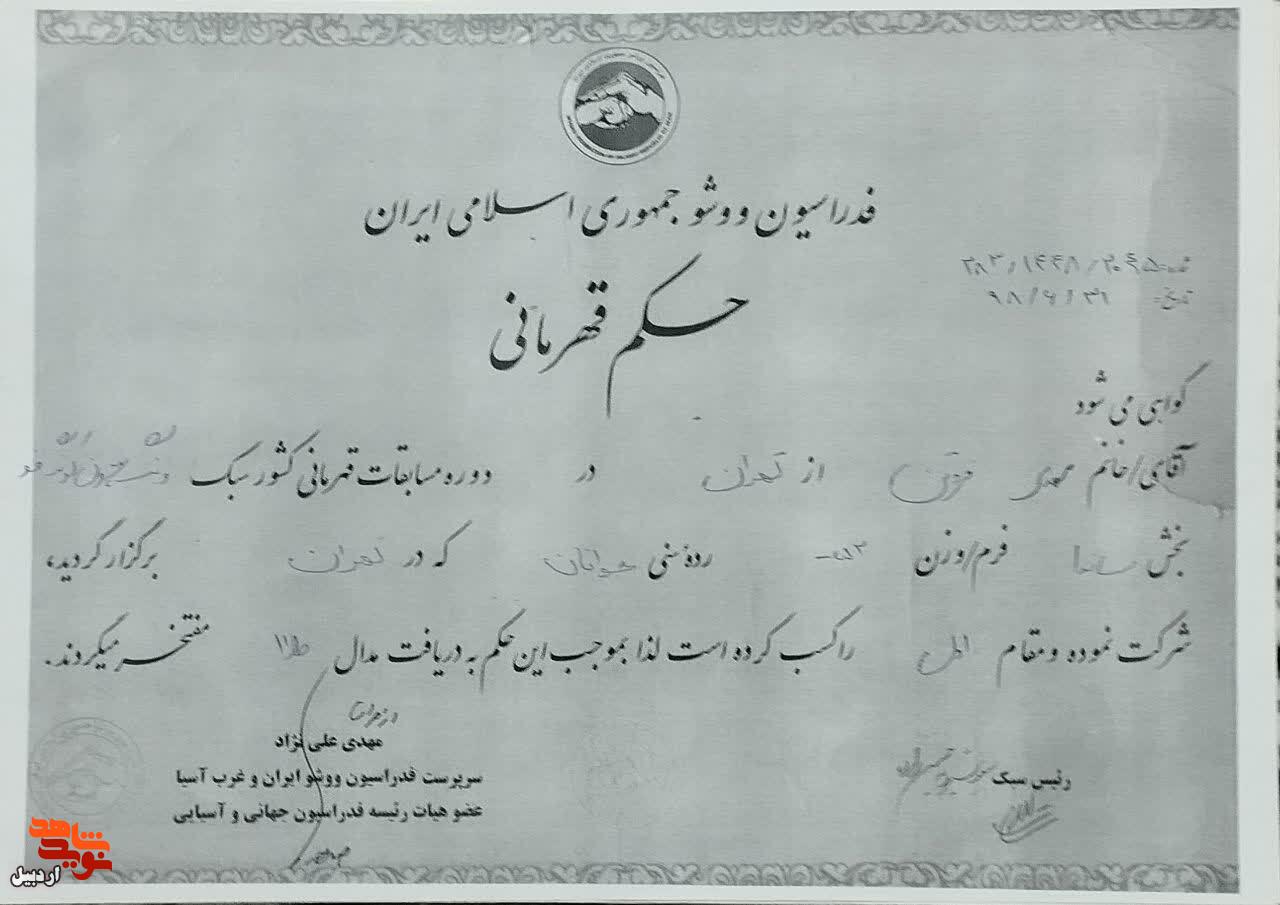 فدراسیون ووشو جمهوری اسلامی ایران
تاریخ: ۹۸/۶/۳۱
حکم قهرمانی
گواهی می شود
آقای/خانم مهدی از تهران در دوره مسابقات قهرمانی کشور سبک
بخش ساندا فرم/وزن ردهٔ سنی جوانان که در تهران برگزار گردید،
شرکت نموده و مقام اول را کسب کرده است لذا بموجب این حکم به دریافت مدال طلا مفتخر میگردند.
رئیس سبک
مهدی علی نژاد
سرپرست فدراسیون ووشو ایران و غرب آسیا
عضو هیات رئیسه فدراسیون جهانی و آسیایی
نوید شاهد
اردبیل